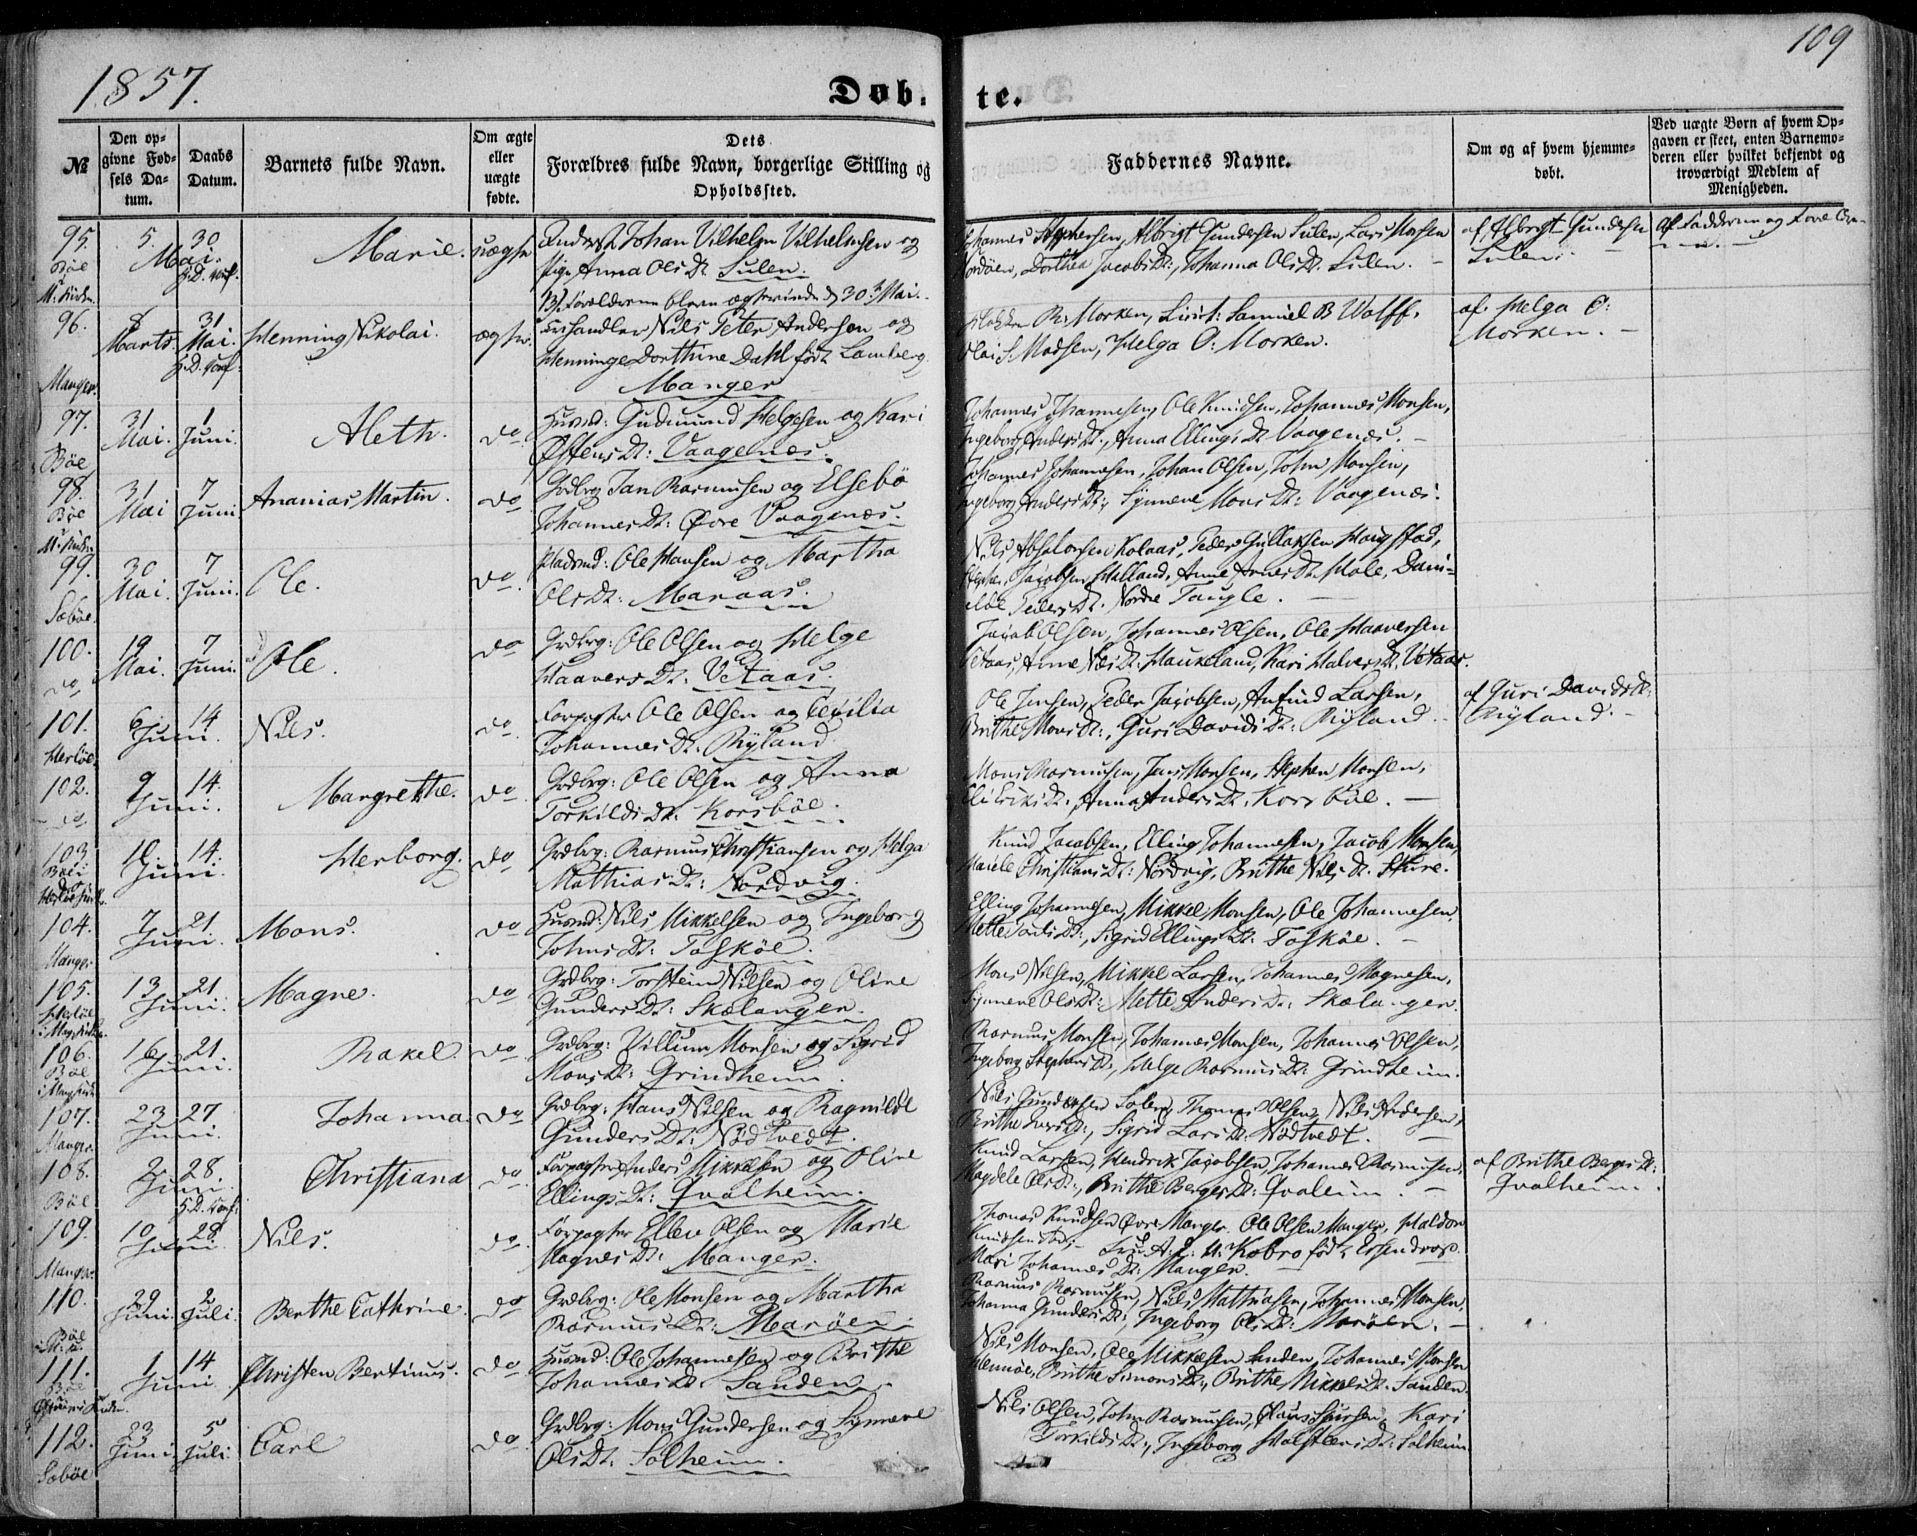 1857.
109
Døb. te.
№
Den opgivne Fødsels Datum.
Daabs Datum.
Barnets fulde Navn.
Om ægte eller uægte fødte.
Dets Forældres fulde Navn, borgerlige Stilling og Opholdssted.
Faddernes Navne.
Om og af hvem hjemmedøbt.
Ved uægte Børn af hvem Opgaven er skeet, enten Barnemoderen eller hvilket bekjendt og troværdigt Medlem af Menigheden.
95. 5. 30 Mai. Marie. uægte Johan Vilhelm Vilhelmsen og
Bøe Pige Anna Ols Dt. Sulen.
Forældrene bleve ægteviede d 30 Mai.
Johannes Stephensen, Albrigt Gundersen Sulen, Lars Monsen
Nordøen, Dorthea Jacobs Dt:, Johanna Ols Dt. Sulen.
af Albrigt Gundersen
Sulen.
96. 8 Marts 31 Mai. Henning Nikolai. ægte. Handler Nils Peter Andersen og
Henninge Dorthine Dahl født Lamberg
Manger. Manger
R: Morken, Samuel B Wolff,
Olai S. Madsen, Helga O: Morken.
af Helga O:
Morken.
97. 31 Mai. 1 Juni. Aleth. do Husmd: Gudmund Helgesen og Kari
Bøe Østens Dt: Vaagenæs.
Johannes Johannesen, Ole Knudsen, Johannes Monsen,
Ingeborg Anders Dt:, Anna Ellings Dt. Vaagenæs.
98. 31 Mai 7 Juni Ananias Martin. do Grdbrg Jan Rasmusen og Elsebø
Bøe Johannes Dt: Øvre Vaagenæs.
Johannes Johannesen, Johan Olsen, John Monsen,
Ingeborg Anders Dt:, Synneve Mons Dt: Vaagenæs.
99. 30 Mai. 7 Juni. Ole. do Pladsmd: Ole Hansen og Martha
Sæbøe. Ols Dt: Maraas.
Nils Absalonsen Kolaas, Peder Gullaksen Haugstad,
Jacobsen Halland, Anne Arnes Dt. Hole, Dani-
elle Peders Dt. Nordre Taugle.
100. 19 Mai. 7 Juni. Ole. do Grdbrg: Ole Olsen og Helge
do, Haavers Dt: Vetaas.
Jacob Olsen, Johannes Olsen, Ole Haaversen
Vetaas, Anne Nils Dt. Haukeland, Kari Halvers Dt. Vetaas.
101. 6 14 Juni. Nils. do. Forpagter Ole Olsen og Cecilia
Herløe. Johannes Dt. Ryland
Ole Jensen, Peder Jacobsen, Anfind Larsen,
Brithe Mons Dt:, Guri Davids Dt: Ryland.
af Guri Davids Dt:
Ryland.
102. 9 14. Juni. Margrethe. do. Grdbrg: Ole Olsen og Anna
do, Torkilds Dt. Korsbøe.
Mons Rasmusen, Jens Monsen, Stephen Monsen,
Eli Eriks Dt., Anna Anders Dt. Korsbøe.
103 10. 14. Juni. Herborg. do Grdbrg: Rasmus Christiansen og Helga
Mathias Dt: Nordvig.
Knud Jacobsen, Elling Johannesen, Jacob Monsen,
Christians Dt: Nordvig, Brithe Nils Dt. Sture.
104. 7 21 Juni. Mons. do Husmd: Nils Mikkelsen og Ingeborg
Manger Johns Dt: Toskøe.
Elling Johannesen, Mikkel Monsen, Ole Johannesen,
Mette Dt:, Sigrid Ellings Dt: Toskøe.
105. 13 21 Juni. Magne. do Grdbrg: Torstein Nilsen og Oline
Gunders Dt: Skælanger.
Mons Nilsen, Mikkel Larsen, Johannes Magnesen,
Synneve Ols Dt: Mette Anders Dt: Skælanger.
106. 16 21. Juni. Rakel. do Grdbrg: Villum Monsen og Sigrid
Bøe Mons Dt: Grindheim.
Rasmus Monsen, Johannes Monsen, Johannes Olsen,
Ingeborg Stephens Dt:, Helge Rasmus Dt: Grindheim.
107. 23 27 Juni. Johanna. do Grdbrg: Hans Nilsen og Ragnilde
Manger Gunders Dt: Nødtvedt.
Nils Gundersen Solem, Thomas Olsen, Nils Andersen,
Brithe Dt:, Sigrid Lars Dt. Nødtvedt.
108. 2 28. Juni. Christiana do. Forpagter Anders Mikkelsen og Oline
Bøe Ellings Dt: Qvalheim.
Knud Larsen, Hendrik Jacobsen, Johannes Rasmusen,
Magdele Ols Dt:, Brithe Berges Dt: Qvaleim.
af Brithe Berges Dt:
Qvalheim.
109. 10 28. Juni. Nils. do. Forpagter Olsen og Marie
Manger. Magnes Dt: Manger.
Thomas Knudsen Øvre Manger, Ole Olsen Manger, Haldor
Knudsen Kobro født
Mari Johannes Dt: Manger.
110. 29 Juni. 2 Juli. Berthe Cathrine. do Grdbrg: Ole Monsen og Martha
Bøe Rasmus Dt: Marøen.
Rasmus Rasmusen, Nils Mathiasen, Johannes Monsen,
Johanna Gunders Dt:, Ingeborg Ols Dt: Marøen.
111. 1 14 Juni Christen Bertinius. do Husmd: Ole Johannesen og Brithe
Bøe Johannes Dt. Sanden.
Nils Monsen, Ole Mikkelsen Sanden, Johannes Monsen
Hennøe, Brithe Simons Dt:, Brithe Mikkels Dt: Sanden.
112. 23 Juni. 5 Juli. Carl do. Grdbrg: Mons Gundersen og Synneve
Sæbøe Ols Dt: Solheim.
Nils Olsen, John Rasmusen, Kari
Torkilds Dt:, Ingeborg Dt: Solheim